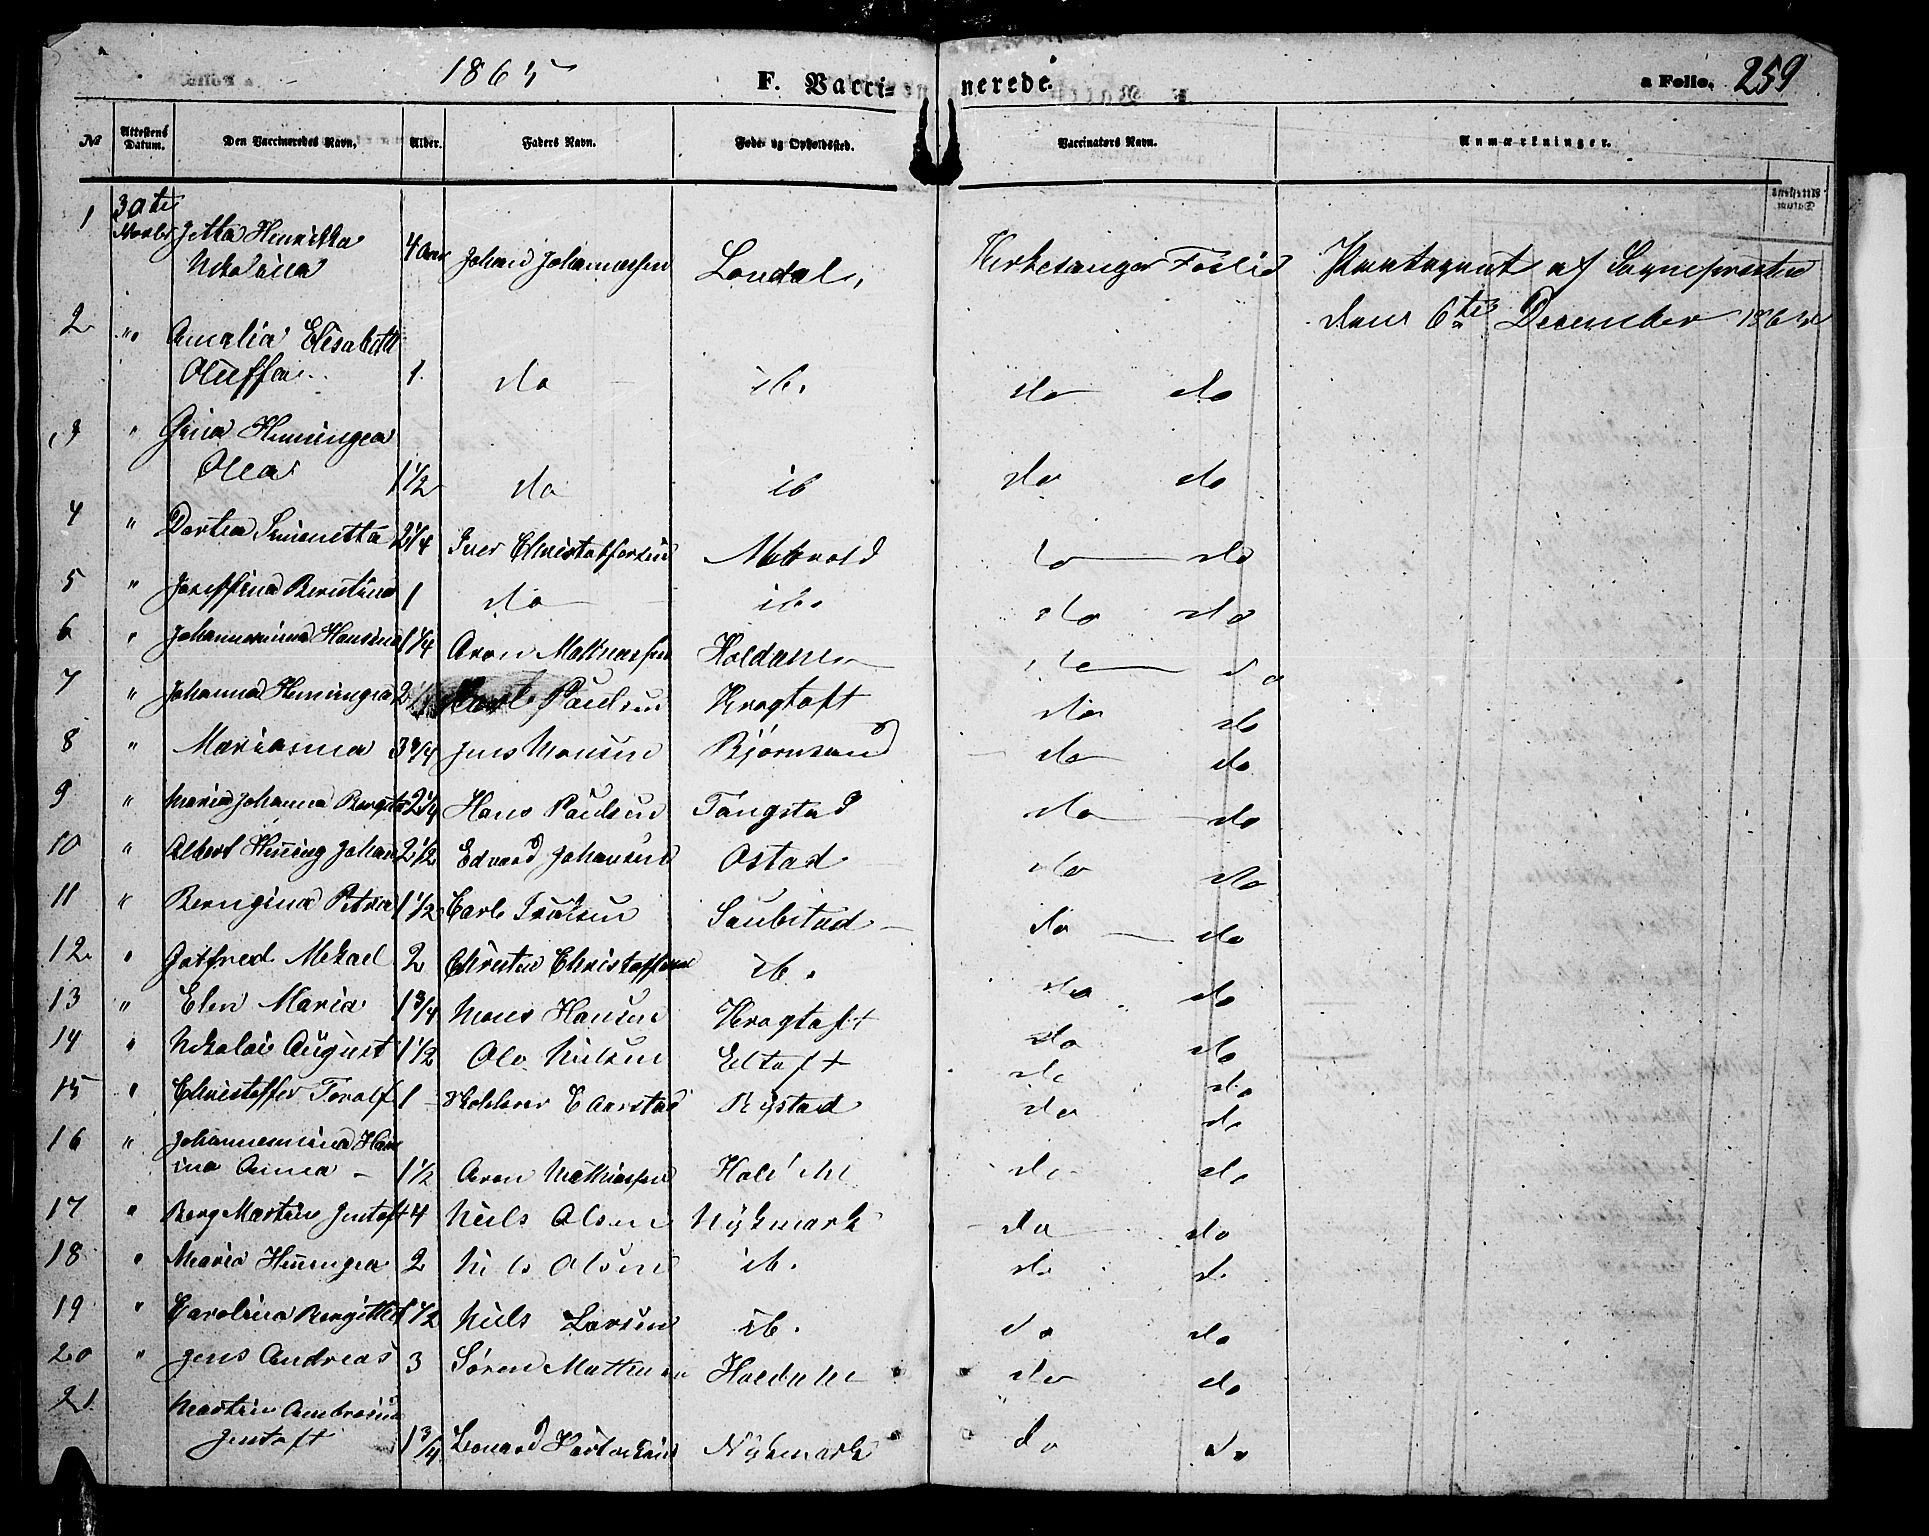 1865 F. Vaccinerede. a Folio. 259
No Attestens Datum. Den Vaccineredes Navn. Alder. Faders Navn. Føde- og Opholdssted. Vaccinators Navn. Anmærkninger.
1 30te Novbr Jetta Henrikka
Nikolina 4 Aar Johan Johannessen Londal, Kirkesanger Foslid Modtagent af Sognepresten
den 6te December 1865
2 " Amalia Elisabeth
Oluffa 1. do ib. do do
3 " Grina Henningea
Olea 1 1/2 do ib do do
4 " Dortea Simonetta 2 1/4 Iver Christoffersen do do
5 " Joseffina Berntina 1 do ib. do do
6 " Johannemina Hansina 1 1/4 Aron Mathiassen Holdalen do do
7 " Johanna Henningea 2 1/2 Karl Paulsen Krogtoft do do
8 " Mariasina 3 3/4 Jens Monsen Bjørnsand do do
9 " Maria Johanna Bergita 2 1/4 Hans Paulsen Tangstad do do
10 " Albert Hening Johan 2 1/2 Edvard Johansen Ostad do do
11 " Berngina Petrea 1 1/2 Carl Saubstad do do
12. " Gotfred Mekael 2 Christen Christoffersen ib. do do
13 " Elen Maria 1 3/4 Mons Hansen Krogtoft do do
14 " Nikolai August 1 1/2 Ole Nielsen Eltoft do do
15 " Christoffer Toralf 1 Rystad do do
16 " Johannemina Han
ina Anna 1 1/2 Aron Mathiassen do do
17 " Berg Martin Jentoft 4 Niels Olsen Nykmark do do
18 " Maria Henningea 2 Nils Olsen ib. do do
19 " Carolina Bergitte 1 1/2 Niels Larsen ib. do do
20 " Jens Andreas 3 Søren do do
21 Martin Ambrosius
Jentoft 1 3/4 Leonard Nykmark do do